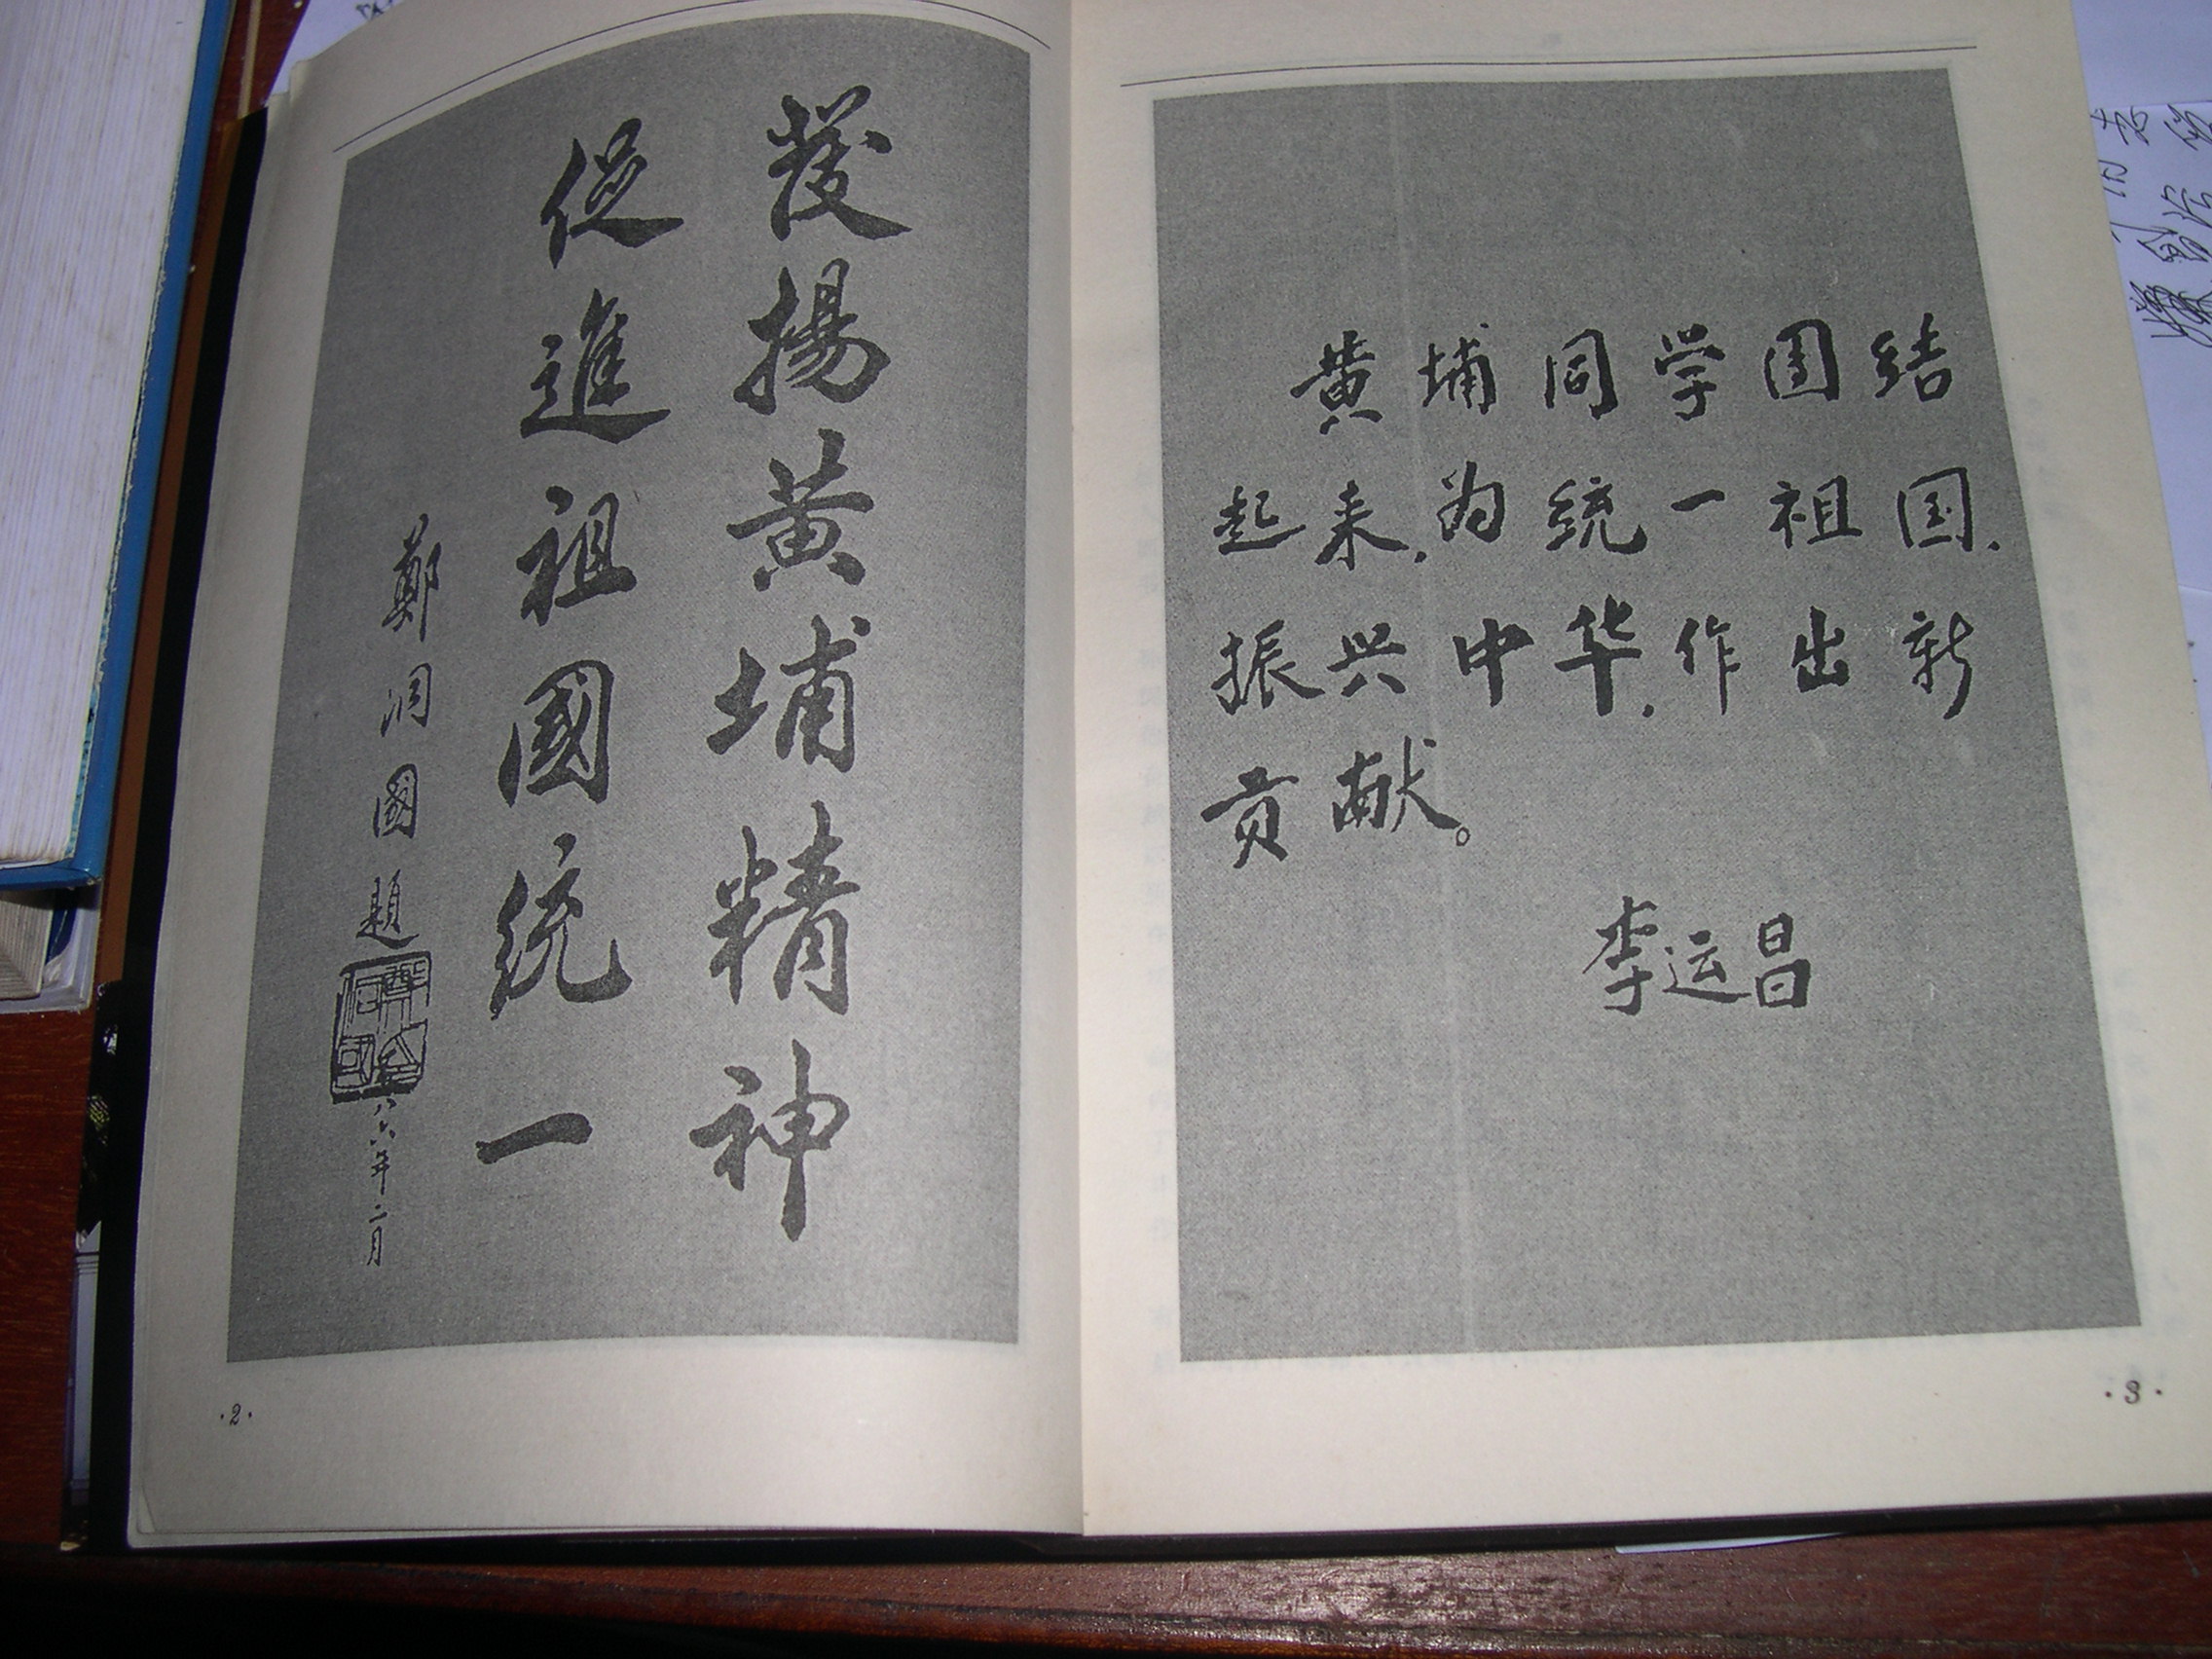 發揚黃埔精神
促進祖國統一
鄭洞國題
八六年二月
·2·
黄埔同学团结
起来,为统一祖国,
振兴中华,作出新
贡献。
李运昌
·3·